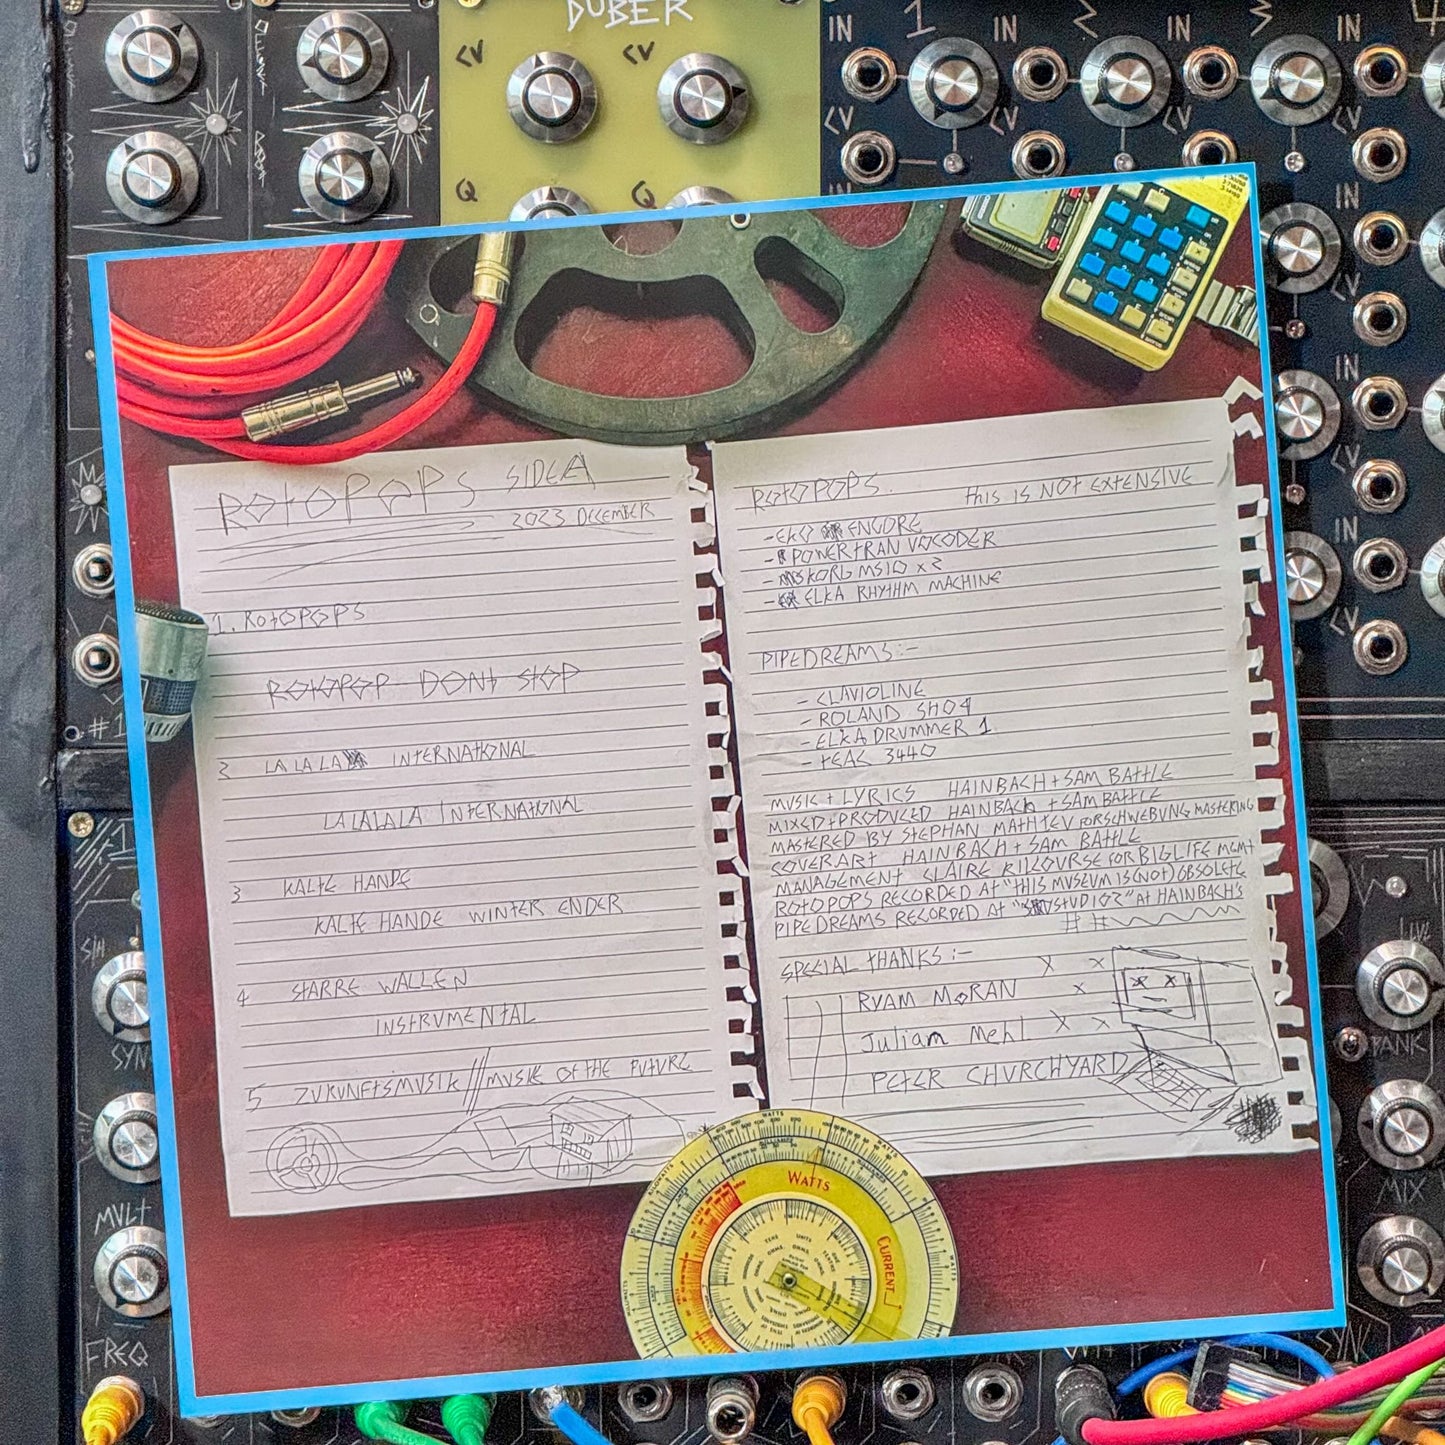 DUBER
CV CV
Q Q
IN 1 IN 2 IN 3 IN 4
CV CV CV CV
IN
CV
IN
CV
IN
CV
ROTOPOPS SIDE A
2023 DECEMBER
1. ROTOPOPS
ROTOPOP DONT STOP
2 LA LA LA INTERNATIONAL
LALALALA INTERNATIONAL
3 KALTE HANDE
KALTE HANDE WINTER ENDER
4 STARRE WALLEN
INSTRUMENTAL
5 ZUKUNFTSMUSIK // MUSIK OF THE FUTURE
ROTOPOPS.
THIS IS NOT EXTENSIVE
- EKO ENCORE
- POWERTRAN VOCODER
- KORG MS10 x 2
- ELKA RHYTHM MACHINE
PIPEDREAMS :-
- CLAVIOLINE
- ROLAND SH04
- ELKA DRUMMER 1
- TEAC 3440
MUSIC + LYRICS HAINBACH + SAM BATTLE
MIXED + PRODUCED HAINBACH + SAM BATTLE
MASTERED BY STEPHAN MATHIEU FOR SCHWEBUNG MASTERING
COVER ART HAINBACH + SAM BATTLE
MANAGEMENT CLAIRE KILCOURSE FOR BIG LIFE MGMT
ROTOPOPS RECORDED AT "THIS MUSEUM IS (NOT) OBSOLETE
PIPEDREAMS RECORDED AT "STUDIO2" AT HAINBACH'S
SPECIAL THANKS :-
RYAM MORAN
Juliam Mehl
PETER CHURCHYARD
WATTS
WATTS
CURRENT
#1
1
S/H
SYNC
MULT
FREQ
LIVE
BANK
MIX
SYNC